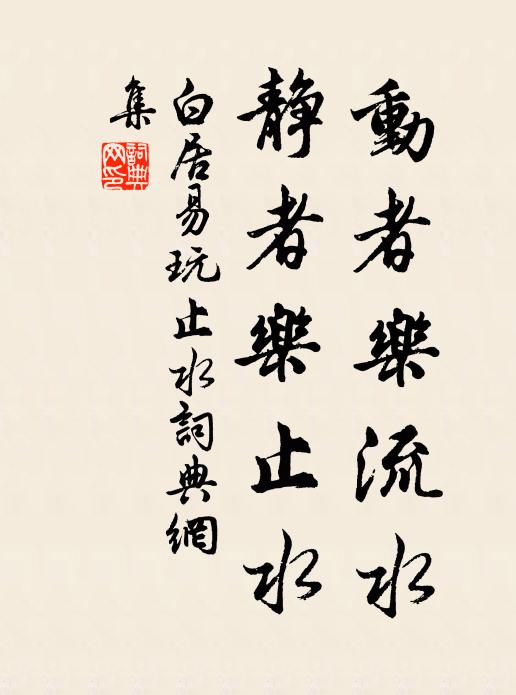 動者樂流水
靜者樂止水
白居易玩止水詞典網
集
詞典網印